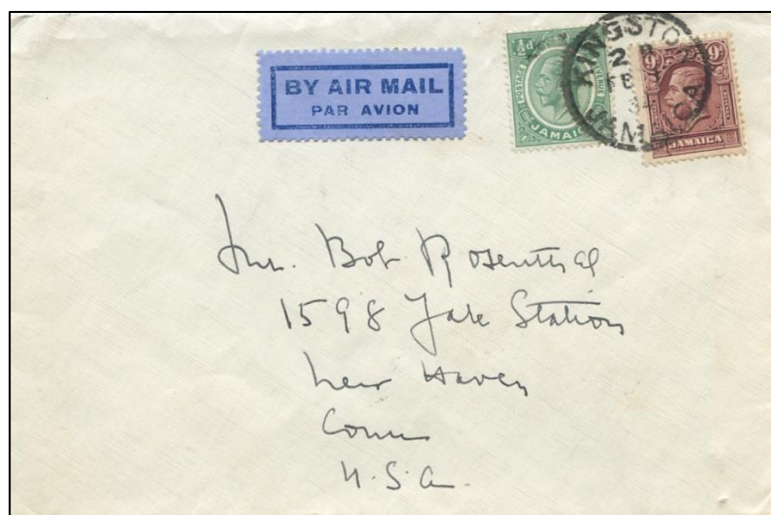 BY AIR MAIL
PAR AVION
½d
POSTAGE
JAMAICA
KINGSTON
2
FE
34
JAMAICA
9d 9d
JAMAICA
Mr. Bob Rosenthal
1598 Yale Station
New Haven
Conn
U.S.A.